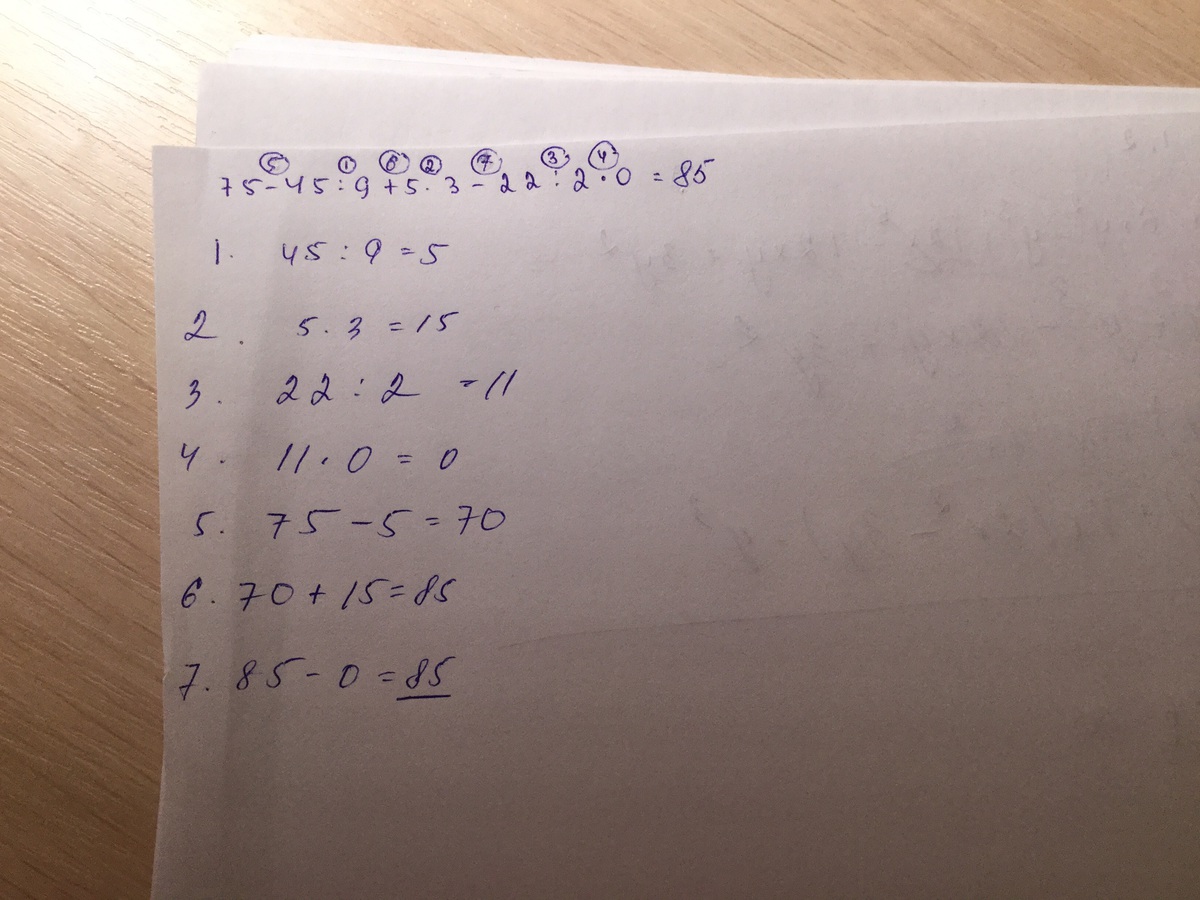 ⑤ ① ⑥ ② ⑦ ③ ④
75-45:9+5·3-22:2·0=85
1. 45:9=5
2. 5·3=15
3. 22:2=11
4. 11·0=0
5. 75-5=70
6. 70+15=85
7. 85-0=85